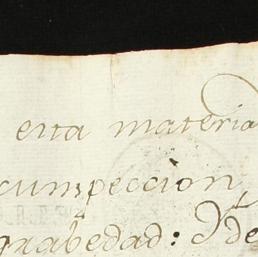 esta materia
cumpeccion
grabedad: Yde